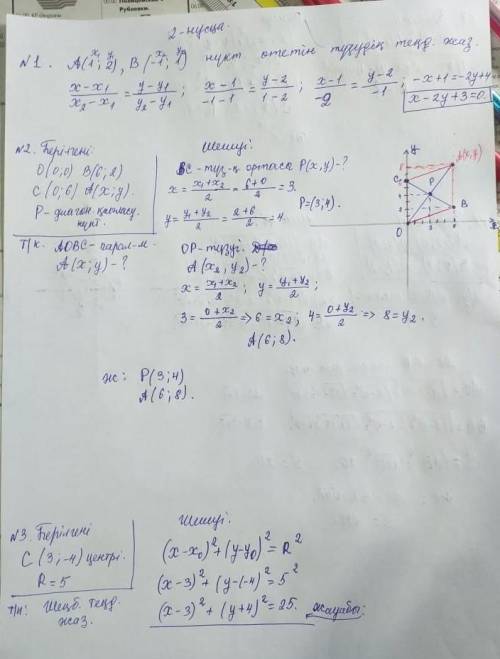 2-нұсқа.
№1. A(1; 2), B(-1; 1) нүкт. өтетін түзудің теңд. жаз.
x₁ y₁ x₂ y₂
(x-x₁)/(x₂-x₁) = (y-y₁)/(y₂-y₁); (x-1)/(-1-1) = (y-2)/(1-2); (x-1)/(-2) = (y-2)/(-1); -x+1=-2y+4
x-2y+3=0.
№2. Берілгені
O(0;0) B(6;2)
C(0;6) A(x;y).
P-диагон. қиылысу.
нүкт.
Т/к. AOBC-парал-м.
A(x;y)-?
Шешуі.
BC-түз-ң ортасы P(x,y)-?
x = (x₁+x₂)/2 = (6+0)/2 = 3.
P=(3;4).
y = (y₁+y₂)/2 = (2+6)/2 = 4.
OP-түзуі.
A(x₂, y₂)-?
x = (x₁+x₂)/2; y = (y₁+y₂)/2;
3 = (0+x₂)/2 => 6=x₂; 4 = (0+y₂)/2 => 8=y₂.
A(6;8).
y
A(x,y)
C
P
B
O
x
ж: P(3;4)
A(6;8).
№3. Берілгені
C(3;-4) центрі.
R=5
Т/к: Шеңб. теңд.
жаз.
Шешуі.
(x-x₀)²+(y-y₀)²=R²
(x-3)²+(y-(-4))²=5²
(x-3)²+(y+4)²=25. жауабы: